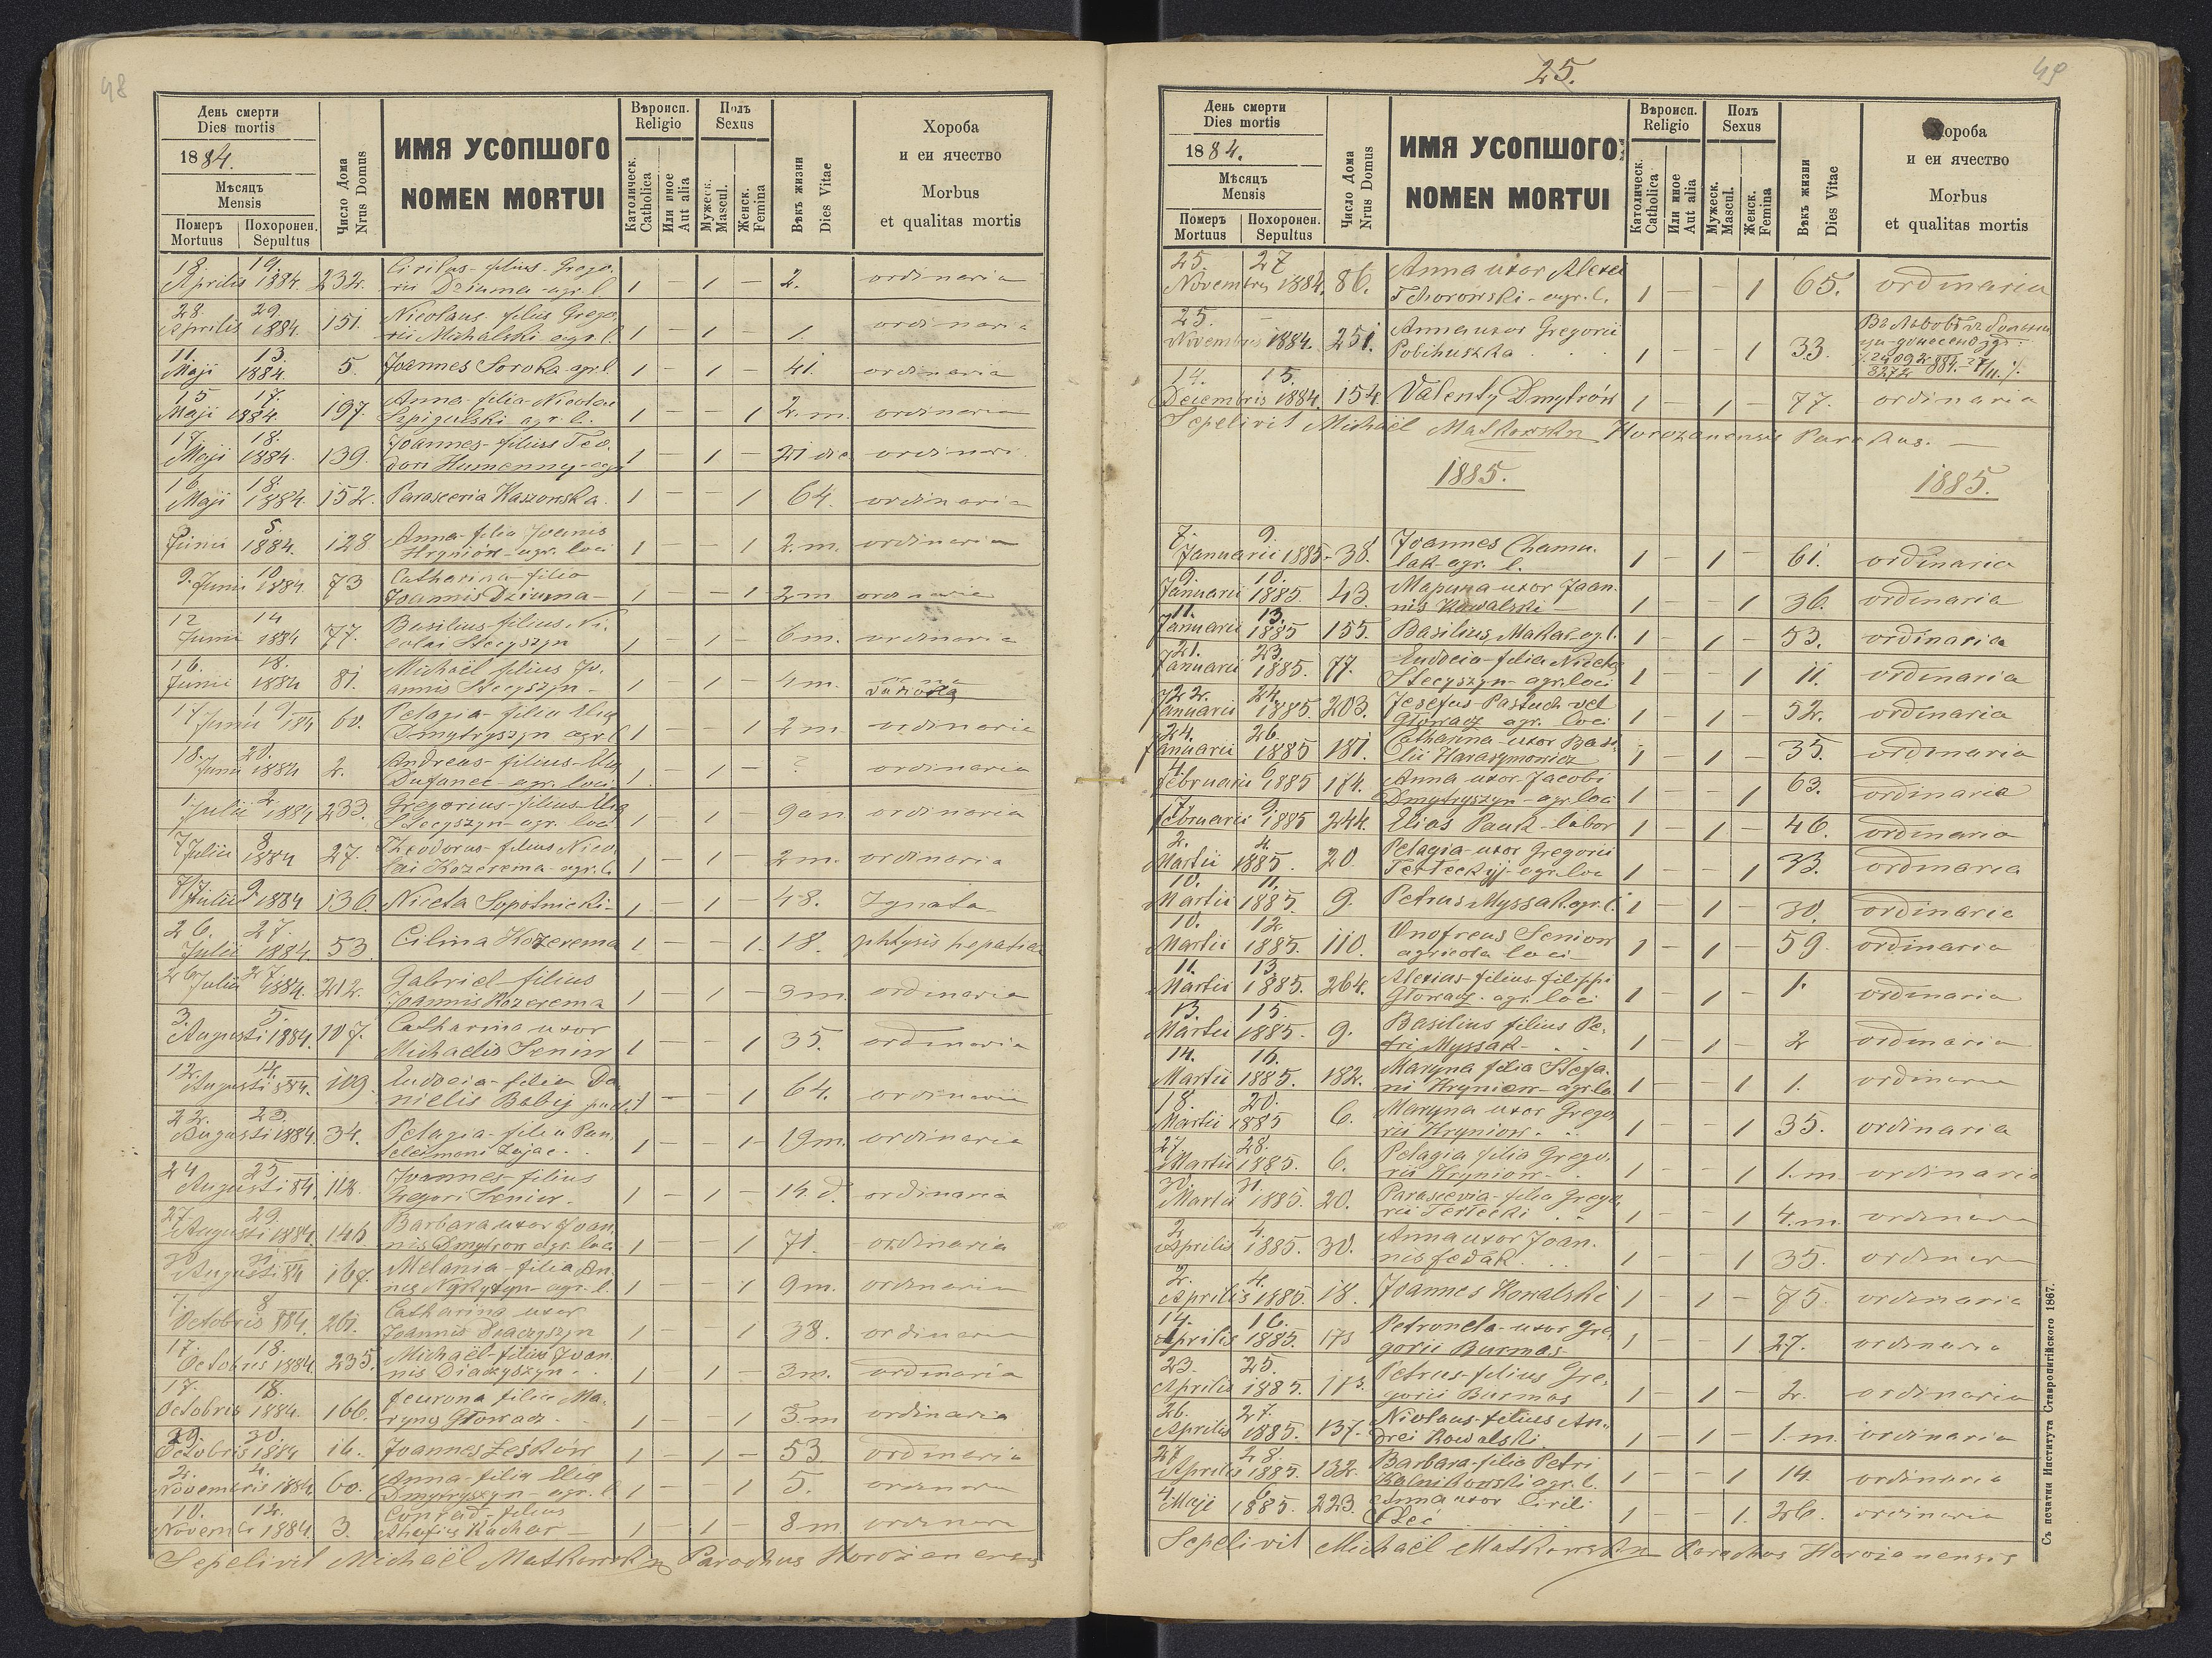 48
День смерти
Dies mortis
1884.
Мѣсяцъ
Mensis
Померъ
Mortuus
Похоронен.
Sepultus
Число Дома
Nrus Domus
ИМЯ УСОПШОГО
NOMEN MORTUI
Вѣроисп.
Religio
Католическ.
Catholica
Или иное
Aut alia
Полъ
Sexus
Мужеск.
Mascul.
Женск.
Femina
Вѣкъ жизни
Dies Vitae
Хороба
и еи ячество
Morbus
et qualitas mortis
18. 19. Cirilus filius Grego-
Aprilis 1884. 232. rii Dziuma agr. l. 1 – 1 – 2. ordinaria
28. 29. Nicolaus filius Grego-
Aprilis 1884. 151. rii Michalski agr. l. 1 – 1 – 1. ordinaria
11. 13.
Maji 1884. 5. Joannes Soroka agr. l. 1 – 1 – 41. ordinaria
15 17. Anna filia Nicolai
Maji 1884. 197. Szpigulski agr. l. 1 – – 1 2. m. ordinaria
17. 18. Joannes filius Teo-
Maji 1884. 139. dori Humenny 1 – 1 – 21 die ordinari
16 18.
Maji 1884. 152. Parascevia Kaszowska. 1 – – 1 64. ordinaria
3. 5. Anna filia Joannis
Junii 1884. 128 Hryniów agr. loci 1 – – 1 2. m. ordinaria
9. 10 Catharina filia
Junii 1884. 73 Joannis Dziuma – 1 – 1 2 m ordinaria
12 14 Basilius filius Ni-
Junii 1884 77. colai Stecyszyn 1 – 1 – 6 m. ordinaria
16. 18. Michaël filius Jo-
Junii 1884 81. annis Stecyszyn – 1 – 1 – 4 m.
17 Pelagia filia Elia
Junii 184 60. Dmytryszyn agr. l 1 – – 1 2 m ordinaria
18. 20. Andreas filius Elia
Junii 1884 2. Dufanec agr. loci 1 – 1 – ? ordinaria
1 2. Gregorius filius Elia
Julii 1884 233. Stecyszyn agr. loci 1 – 1 – 9 an ordinaria
7 8 Theodorus filius Nico-
Julii 1884 27. lai Kozerema agr. l. 1 – 1 – 2 m. ordinaria
Julii 9. 1884 136. Niceta Sopotnicki – 1 – 1 – 48. Ignota
26. 27.
Julii 1884. 53 Cilina Kozerema 1 – – 1. 18. phtysis hepatica
26 27. Gabriel filius
Julii 1884. 212. Joannis Kozerema 1 – 1 – 3 m. ordinaria
3. 5. Catharina uxor
Augusti 1884. 107. Michaelis Senin 1 – – 1 35. ordinaria
12. 14. Eudocia filia Da-
Augusti 884. 109. nielis Babij 1 – – 1 64. ordinaria
22. 23. Pelagia filia Pan-
Augusti 1884. 34. teleimoni Zajac. 1 – – 1 19 m. ordinaria
24 25 Joannes filius
Augusti 84. 118. Gregori Seniw. 1 – 1 – 14. d. ordinaria
27 29. Barbara uxor Joan-
Augusti 1884. 145 nis Dmytrow agr. loci 1 – – 1 71. ordinaria
30 31. Melania filia An-
Augusti 84 167. nes Nykytyn agr. l. 1 – – 1 9 m. ordinaria
7. 8 Catharina uxor
Octobris 884. 261. Joannis Diaczyszyn 1 – – 1 38. ordinaria
17. 18. Michaël filius Joan-
Octobris 1884. 235. nis Diaczyszyn. 1 – 1 – 3 m. ordinaria
17. 18. Feurona filia Ma-
Octobris 1884. 166. ryna Głowacz 1 – – 1 5. m ordinaria
29. 30.
Octobris 1884 16. Joannes Leśków 1 – 1 – 53. ordinaria
2. 4. Anna filia Elia
Novembris 1884. 60. Dmytryszyn agr. l 1 – – 1 5. ordinaria
10. 12. Conrad filius
Novemb 1884. 3. Kuchar – 1 – 1 – 8 m. ordinari
Sepelivit Michaël Matkowsky Parochus Horożanensis
25.
49
День смерти
Dies mortis
1884.
Мѣсяцъ
Mensis
Померъ
Mortuus
Похоронен.
Sepultus
Число Дома
Nrus Domus
ИМЯ УСОПШОГО
NOMEN MORTUI
Вѣроисп.
Religio
Католическ.
Catholica
Или иное
Aut alia
Полъ
Sexus
Мужеск.
Mascul.
Женск.
Femina
Вѣкъ жизни
Dies Vitae
Хороба
и еи ячество
Morbus
et qualitas mortis
25. 27 Anna uxor Alexei
Novembris 1884. 86. Tchorowski – agr. l. 1 – – 1 65. ordinaria
25. – Anna uxor Gregorii
Novembris 1884. 251. Pobihuszka 1 – – 1 33.
14. 15.
Decembris 1884. 154. Valenty Dmytrów 1 – 1 – 77. ordinaria
Sepelivit Michaël Matkowsky Horozanensis Parochus. –
1885. 1885.
7. 9. Joannes Chamu-
Januarii 1885 – 38. lak agr. l. 1 – 1 – 61. ordinaria
9. 10. Mapuna uxor Joan-
Januarii 1885. 43. nis Kowalski – 1 – – 1 36. ordinaria
11. 13.
Januarii 1885 155. Basilius Makar ag. l. 1 – 1 – 53. ordinaria
21. 23. Eudocia filia Niceta
Januarii 1885. 77. Stecyszyn – agr. loci 1 – – 1 11. ordinaria
22. 24. Josefus Pastuch vel
Januarii 1885. 203. Głowacz agr. loci 1 – 1 – 52. ordinaria
24. 26. Catharina uxor Basi-
Januarii 1885 181. lii Harasymowicz 1 – 1 – 35. ordinaria
4. 6 Anna uxor Jacobi
Februarii 1885 174. Dmytryszyn – agr. loci 1 – – 1 63. ordinaria
7. 9.
Februarii 1885 244. Elias Pauk – labor 1 – 1 – 46. ordinaria
2. 4. Pelagia uxor Gregorii
Martii 1885. 20 Terleckyj – agr. loc 1 – – 1 33. ordinaria
10. 11.
Martii 1885. 9. Petrus Myssak agr. l. 1 – 1 – 30. ordinaria
10. 12. Onofreus Seniow
Martii 1885. 110. agricola loci 1 – 1 – 59. ordinaria
11. 13. Alexius filius filippi
Martii 1885. 264. Głowacz agr. loci 1 – 1 – 1. ordinaria
13. 15. Basilius filius Pe-
Martii 1885. 9. tri Myssak – 1 – 1 – 2 ordinaria
14. 16. Maryna filia Stefa-
Martii 1885. 182. ni Hryniow – agr. lo. 1 – – 1 1. ordinaria
18. 20. Maryna uxor Grego-
Martii 1885 6. rii Hryniow. 1 – – 1 35. ordinaria
27 28. Pelagia filia Grego-
Martii 1885. 6. rii Hryniow 1 – – 1 1. m ordinaria
30. 31. Parascevia filia Grego-
Martii 1885. 20. rii Terlecki 1 – – 1 4. m ordinaria
2 4. Anna uxor Joan-
Aprilis 1885. 30. nis fedák 1 – – 1 35. ordinar
2. 4.
Aprilis 1885. 18. Joannes Kowalski 1 – 1 – 75. ordinaria
14. 16. Petronela uxor Gre-
Aprilis 1885. 173 gorii Burmas 1 – – 1 27. ordinaria
23. 25. Petrus filius Gre-
Aprilis 1885. 113. gorii Burmas 1 – 1 – 2. ordinaria
26. 27. Nicolaus filius An-
Aprilis 1885. 137. drei Kowalski 1 – 1 – 1. m. ordinaria
27 28. Barbara filia Petri
Aprilis 1885. 132. Kalnikowski agr. l. 1 – – 1 14. ordinaria
4. 6. Anna uxor Cirili
Maji 1885. 223 Oleć 1 – – 1. 26. ordinaria
Sepelivit Michaël Matkowsky Parochus Horożanensis
Съ печатни Института Ставропигійского 1867.